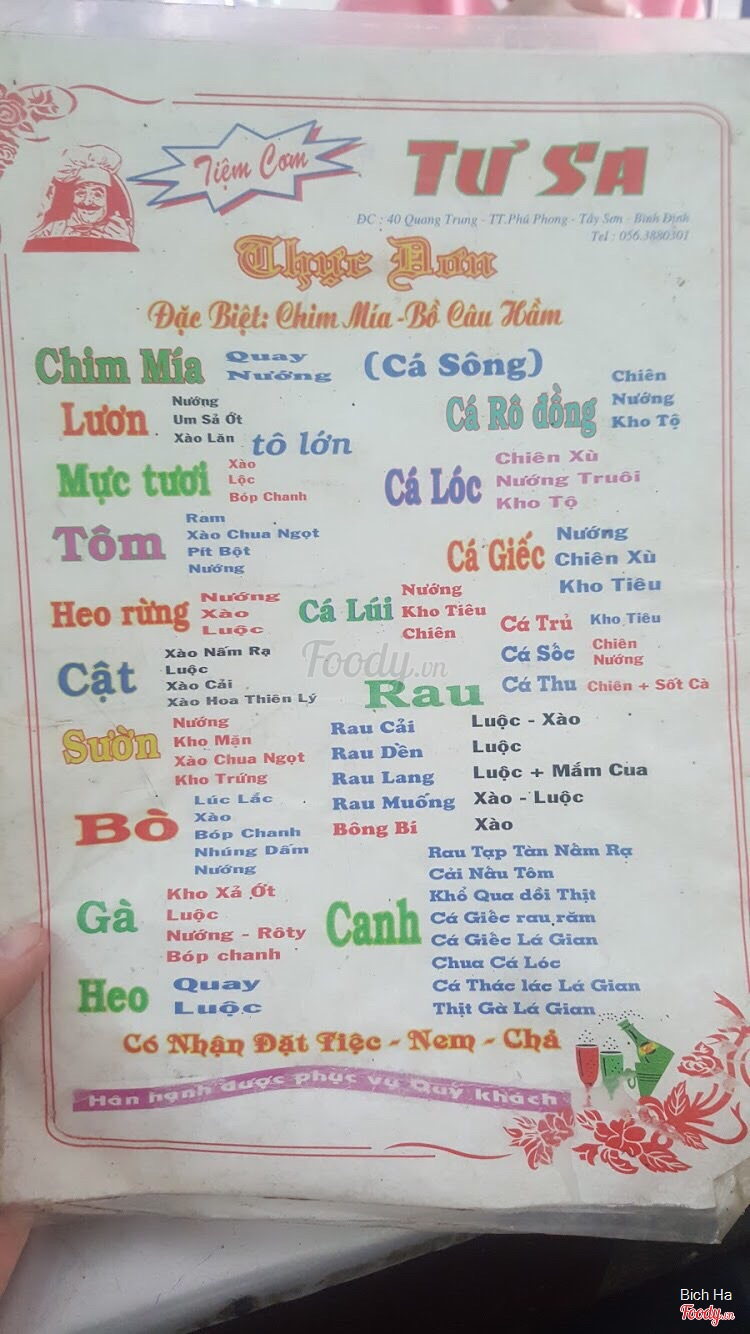 Tiệm Cơm
TƯ SA
ĐC : 40 Quang Trung - TT.Phú Phong - Tây Sơn - Bình Định
Tel : 056.3880301
Thực Đơn
Đặc Biệt: Chim Mía - Bồ Câu Hầm
Chim Mía
Quay
Nướng
Lươn
Nướng
Um Sả Ớt
Xào Lăn
tô lớn
Mực tươi
Xào
Lộc
Bóp Chanh
Tôm
Ram
Xào Chua Ngọt
Pít Bột
Nướng
Heo rừng
Nướng
Xào
Luộc
Cật
Xào Nấm Rạ
Luộc
Xào Cải
Xào Hoa Thiên Lý
Sườn
Nướng
Kho Mặn
Xào Chua Ngọt
Kho Trứng
Bò
Lúc Lắc
Xào
Bóp Chanh
Nhúng Dấm
Nướng
Gà
Kho Xả Ớt
Luộc
Nướng - Rôty
Bóp chanh
Heo
Quay
Luộc
(Cá Sông)
Cá Rô đồng
Chiên
Nướng
Kho Tộ
Cá Lóc
Chiên Xù
Nướng Truôi
Kho Tộ
Cá Giếc
Nướng
Chiên Xù
Kho Tiêu
Cá Lúi
Nướng
Kho Tiêu
Chiên
Cá Trủ
Kho Tiêu
Cá Sốc
Chiên
Nướng
Cá Thu
Chiên + Sốt Cà
Rau
Rau Cải Luộc - Xào
Rau Dền Luộc
Rau Lang Luộc + Mắm Cua
Rau Muống Xào - Luộc
Bông Bí Xào
Canh
Rau Tạp Tàn Nấm Rạ
Cải Nấu Tôm
Khổ Qua dồi Thịt
Cá Giếc rau răm
Cá Giếc Lá Gian
Chua Cá Lóc
Cá Thác lác Lá Gian
Thịt Gà Lá Gian
Có Nhận Đặt Tiệc - Nem - Chả
Hân hạnh được phục vụ Quý khách
Foody.vn
Bich Ha
Foody.vn